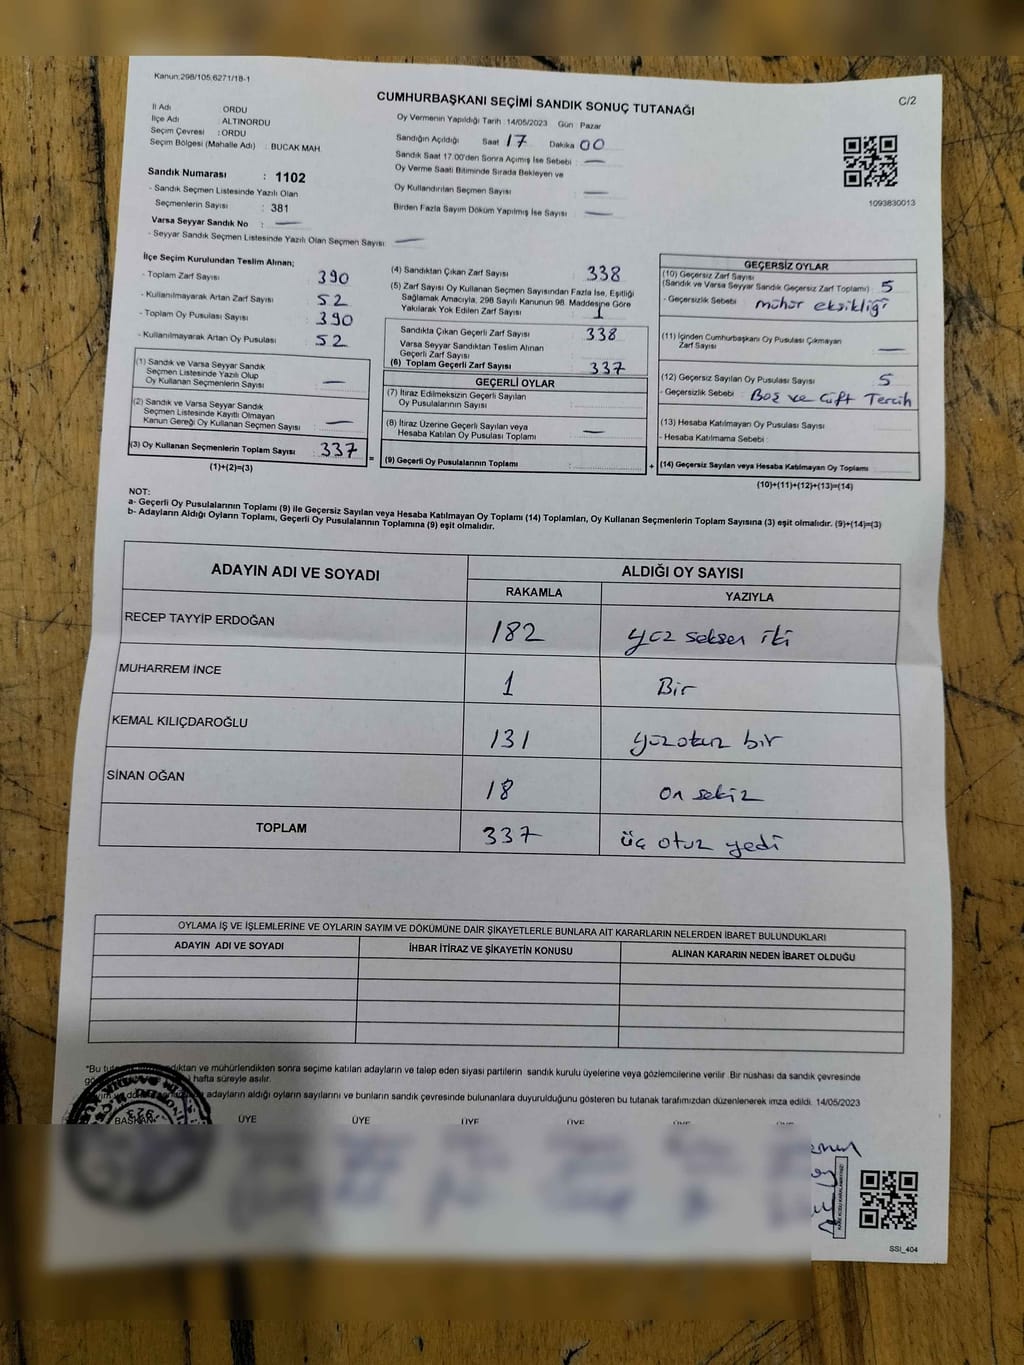 Kanun:298/105,6271/18-1
C/2
CUMHURBAŞKANI SEÇİMİ SANDIK SONUÇ TUTANAĞI
İl Adı : ORDU
İlçe Adı : ALTINORDU
Seçim Çevresi : ORDU
Seçim Bölgesi (Mahalle Adı) : BUCAK MAH
Oy Vermenin Yapıldığı Tarih : 14/05/2023 Gün Pazar
Sandığın Açıldığı Saat 17 Dakika 00
Sandık Saat 17.00'den Sonra Açımış İse Sebebi : —
Oy Verme Saati Bitiminde Sırada Bekleyen ve
Oy Kullandırılan Seçmen Sayısı : —
Birden Fazla Sayım Döküm Yapılmış İse Sayısı : —
1093830013
Sandık Numarası : 1102
- Sandık Seçmen Listesinde Yazılı Olan
Seçmenlerin Sayısı : 381
Varsa Seyyar Sandık No : —
- Seyyar Sandık Seçmen Listesinde Yazılı Olan Seçmen Sayısı : —
İlçe Seçim Kurulundan Teslim Alınan;
- Toplam Zarf Sayısı : 390
- Kullanılmayarak Artan Zarf Sayısı : 52
- Toplam Oy Pusulası Sayısı : 390
- Kullanılmayarak Artan Oy Pusulası : 52
(1) Sandık ve Varsa Seyyar Sandık
Seçmen Listesinde Yazılı Olup
Oy Kullanan Seçmenlerin Sayısı : —
(2) Sandık ve Varsa Seyyar Sandık
Seçmen Listesinde Kayıtlı Olmayan
Kanun Gereği Oy Kullanan Seçmen Sayısı : —
(3) Oy Kullanan Seçmenlerin Toplam Sayısı : 337
(1)+(2)=(3)
(4) Sandıktan Çıkan Zarf Sayısı : 338
(5) Zarf Sayısı Oy Kullanan Seçmen Sayısından Fazla İse, Eşitliği
Sağlamak Amacıyla, 298 Sayılı Kanunun 98. Maddesine Göre
Yakılarak Yok Edilen Zarf Sayısı : 1
Sandıkta Çıkan Geçerli Zarf Sayısı : 338
Varsa Seyyar Sandıktan Teslim Alınan
Geçerli Zarf Sayısı
(6) Toplam Geçerli Zarf Sayısı : 337
GEÇERLİ OYLAR
(7) İtiraz Edilmeksizin Geçerli Sayılan
Oy Pusulalarının Sayısı :
(8) İtiraz Üzerine Geçerli Sayılan veya
Hesaba Katılan Oy Pusulası Toplamı : —
= (9) Geçerli Oy Pusulalarının Toplamı :
GEÇERSİZ OYLAR
(10) Geçersiz Zarf Sayısı
(Sandık ve Varsa Seyyar Sandık Geçersiz Zarf Toplamı) : 5
- Geçersizlik Sebebi : mühür eksikliği
(11) İçinden Cumhurbaşkanı Oy Pusulası Çıkmayan
Zarf Sayısı : —
(12) Geçersiz Sayılan Oy Pusulası Sayısı : 5
- Geçersizlik Sebebi : Boş ve Çift Tercih
(13) Hesaba Katılmayan Oy Pusulası Sayısı :
- Hesaba Katılmama Sebebi :
+ (14) Geçersiz Sayılan veya Hesaba Katılmayan Oy Toplamı
(10)+(11)+(12)+(13)=(14)
NOT:
a- Geçerli Oy Pusulalarının Toplamı (9) ile Geçersiz Sayılan veya Hesaba Katılmayan Oy Toplamı (14) Toplamları, Oy Kullanan Seçmenlerin Toplam Sayısına (3) eşit olmalıdır. (9)+(14)=(3)
b- Adayların Aldığı Oyların Toplamı, Geçerli Oy Pusulalarının Toplamına (9) eşit olmalıdır.
ADAYIN ADI VE SOYADI ALDIĞI OY SAYISI
RAKAMLA YAZIYLA
RECEP TAYYİP ERDOĞAN 182 yüz seksen iki
MUHARREM İNCE 1 Bir
KEMAL KILIÇDAROĞLU 131 yüzotuz bir
SİNAN OĞAN 18 on sekiz
TOPLAM 337 üç otuz yedi
OYLAMA İŞ VE İŞLEMLERİNE VE OYLARIN SAYIM VE DÖKÜMÜNE DAİR ŞİKAYETLERLE BUNLARA AİT KARARLARIN NELERDEN İBARET BULUNDUKLARI
ADAYIN ADI VE SOYADI İHBAR İTİRAZ VE ŞİKAYETİN KONUSU ALINAN KARARIN NEDEN İBARET OLDUĞU
*Bu ve mühürlendikten sonra seçime katılan adayların ve talep eden siyasi partilerin sandık kurulu üyelerine veya gözlemcilerine verilir. Bir nüshası da sandık çevresinde
hafta süreyle asılır.
adayların aldığı oyların sayılarını ve bunların sandık çevresinde bulunanlara duyurulduğunu gösteren bu tutanak tarafımızdan düzenlenerek imza edildi. 14/05/2023
BAŞKAN ÜYE ÜYE ÜYE ÜYE ÜYE ÜYE
SSI_404